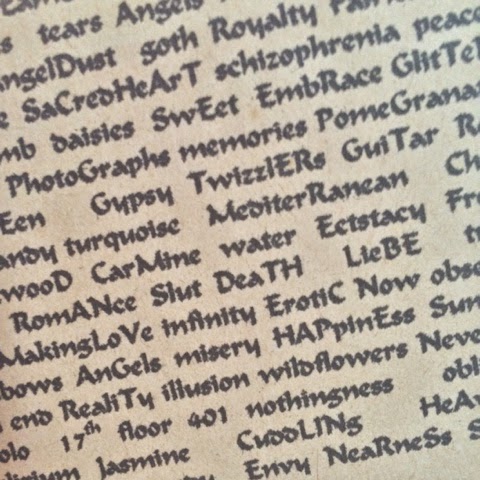 tears Angels
AngelDust goth Royalty
SaCredHeArT schizophrenia
daisies SwEet EmbRace GlitTeR
PhotoGraphs memories PomeGranat
Een Gypsy TwizzlERs GuiTar
andy turquoise MediterRanean Ch
wooD CarMine water Ectstacy Fre
RomANce Slut DeaTH LieBE
MakingLoVe infinity EroTiC Now obse
bows AnGels misery HAPpinEss Sun
end RealiTy illusion wildflowers Neve
olo 17th floor 401 nothingness obl
lirium Jasmine CuDDLINg HeAv
Envy NeaRneSs S